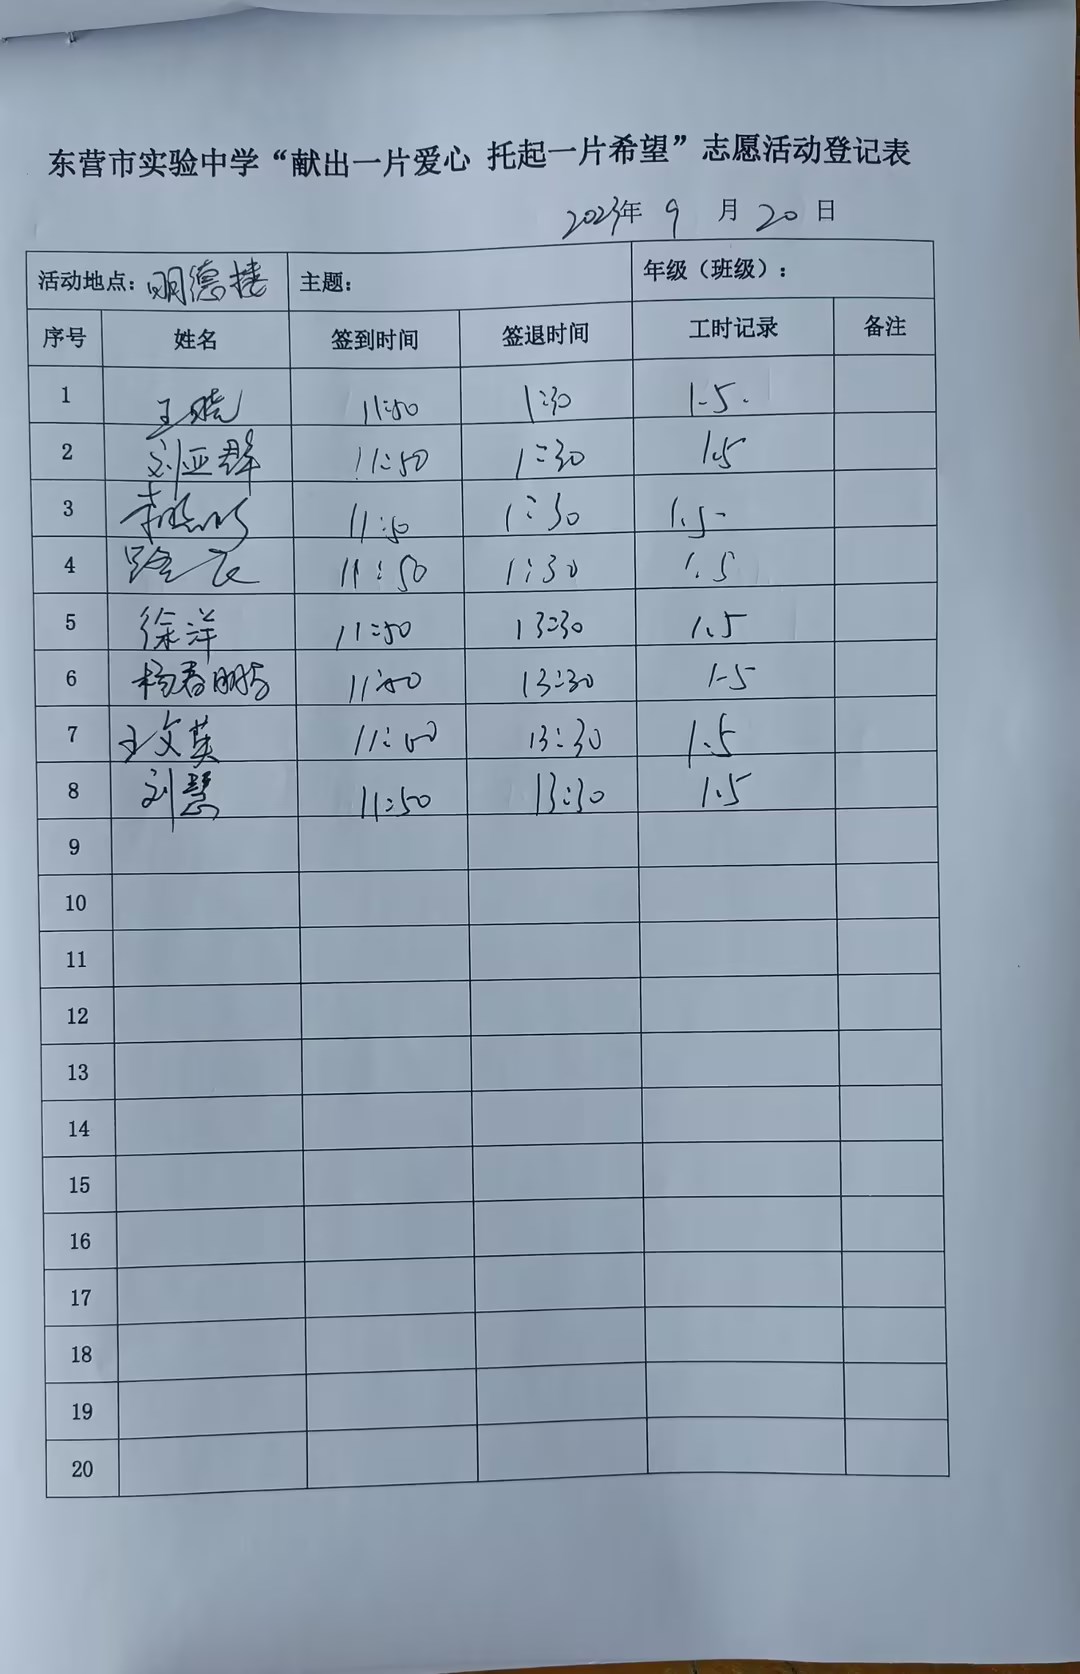 东营市实验中学“献出一片爱心 托起一片希望”志愿活动登记表
2023年 9 月 20 日
活动地点：明德楼 主题： 年级（班级）：
序号 姓名 签到时间 签退时间 工时记录 备注
1 王晓 11:50 1:30 1.5.
2 刘亚群 11:50 1:30 1.5
3 11:50 1:30 1.5
4 11:50 1:30 1.5
5 徐洋 11:50 13:30 1.5
6 杨春鹏 11:50 13:30 1.5
7 王文英 11:50 13:30 1.5
8 刘慧 11:50 13:30 1.5
9
10
11
12
13
14
15
16
17
18
19
20